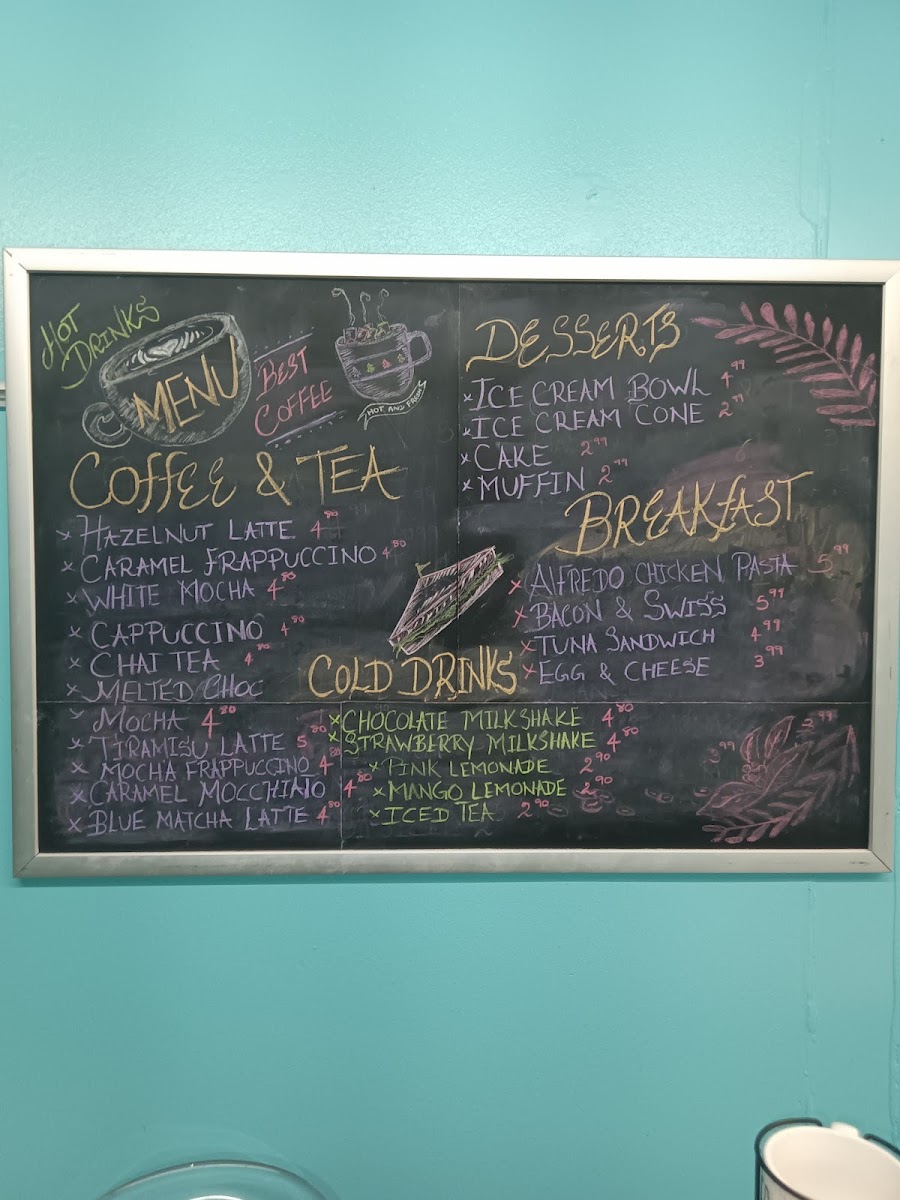 HOT
DRINKS
MENU
BEST
COFFEE
HOT AND FRESH
COFFEE & TEA
x HAZELNUT LATTE 4.80
x CARAMEL FRAPPUCCINO 4.80
x WHITE MOCHA 4.80
x CAPPUCCINO 4.80
x CHAI TEA 4.80
x MELTED CHOC
x MOCHA 4.80
x TIRAMISU LATTE 5.80
x MOCHA FRAPPUCCINO 4.80
x CARAMEL MOCCHINO 4.80
x BLUE MATCHA LATTE 4.80
COLD DRINKS
x CHOCOLATE MILKSHAKE 4.80
x STRAWBERRY MILKSHAKE 4.80
x PINK LEMONADE 2.90
x MANGO LEMONADE 2.90
x ICED TEA 2.90
DESSERTS
x ICE CREAM BOWL 4.99
x ICE CREAM CONE 2.99
x CAKE 2.99
x MUFFIN 2.99
BREAKFAST
x ALFREDO CHICKEN PASTA 5.99
x BACON & SWISS 5.99
x TUNA SANDWICH 4.99
x EGG & CHEESE 3.99